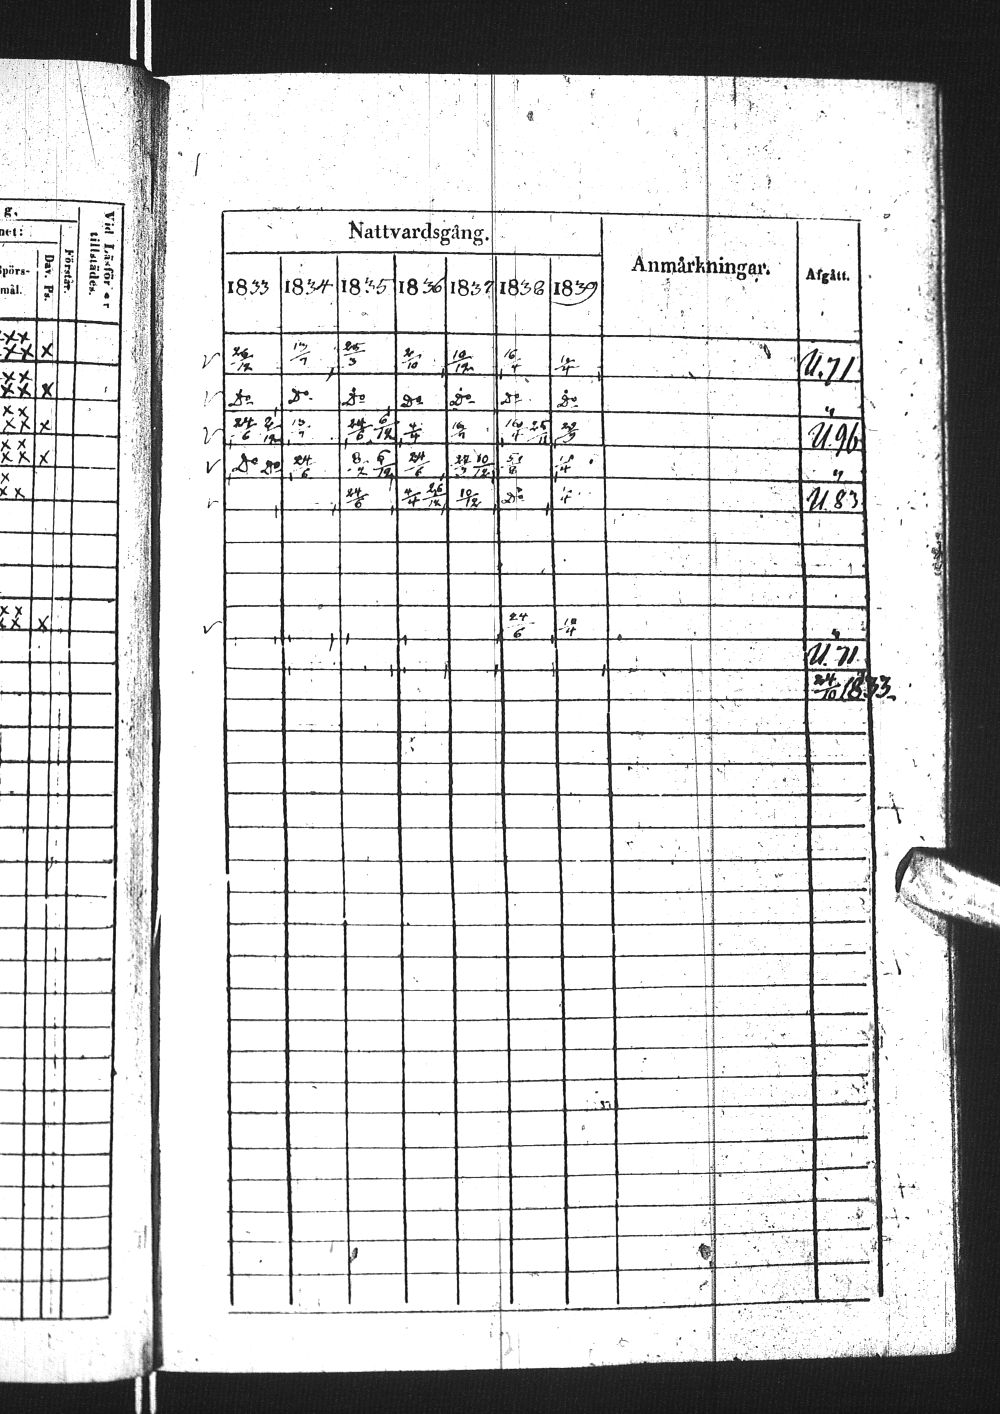 g.
net:
Spörs-
mål.
Dav. Ps.
Förstår.
Vid Läsför
tillstädes.
xxx
xxx x
xx
xx x
xx
xx x
xx
xx x
x
xx
xx
xx x
Nattvardsgång.
Anmärkningar.
Afgått.
1833 1834 1835 1836 1837 1838 1839
26/12 13/7 25/3 2/10 10/12 16/4 12/4 U.71
Do Do Do Do Do Do Do "
24/6 2/12 13/7 24/6 6/12 4/4 16/7 16/4 25/11 22/9 U.96
Do Do 24/6 6/12 24/6 10/12 "
24/6 4/4 26/12 10/12 Do U.83
24/6 10/4 "
U.71
24/10 1833.